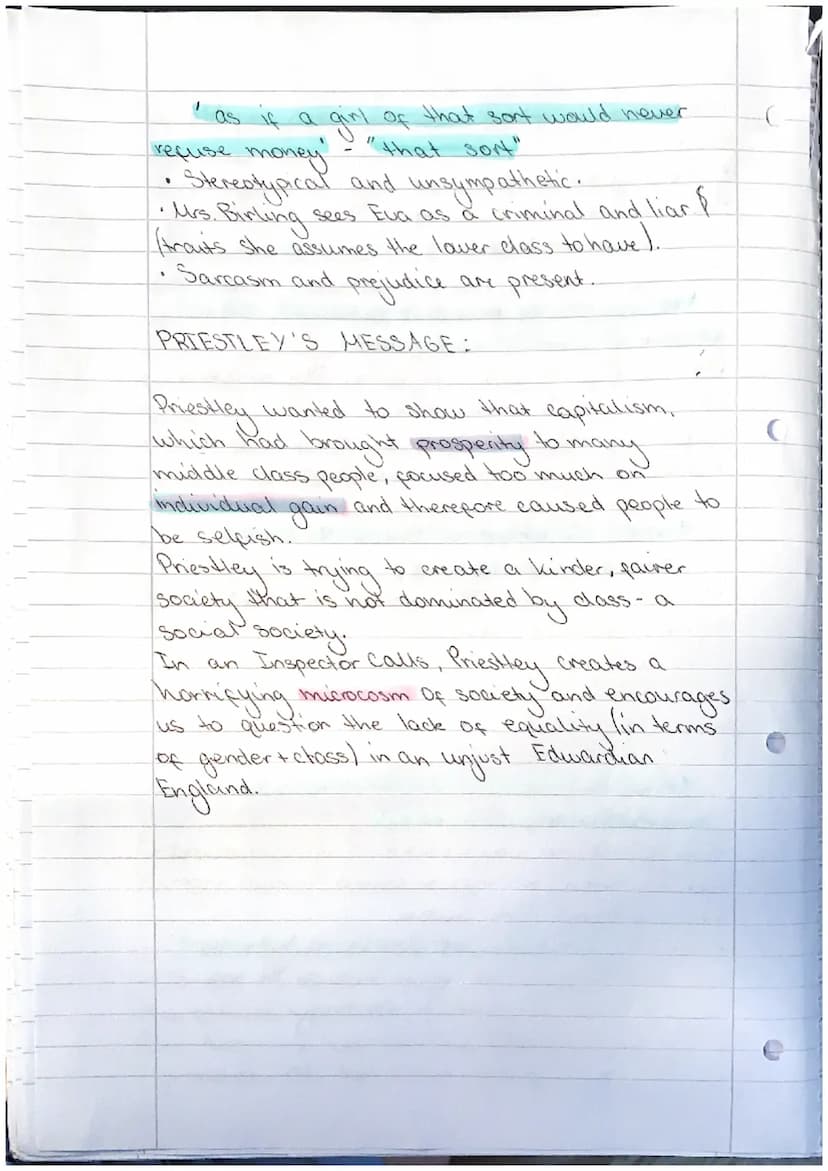 'as if a girl of that sort would never
refuse money' - "that sort"
• Stereotypical and unsympathetic.
• Mrs. Birling sees Eva as a criminal and liar
(traits she assumes the lower class to have).
• Sarcasm and prejudice are present.
PRIESTLEY'S MESSAGE:
Priestley wanted to show that capitalism,
which had brought prosperity to many
middle class people, focused too much on
individual gain and therefore caused people to
be selfish.
Priestley is trying to create a kinder, fairer
society that is not dominated by class - a
social society.
In an Inspector Calls, Priestley creates a
horrifying microcosm of society and encourages
us to question the lack of equality (in terms
of gender + class) in an unjust Edwardian
England.